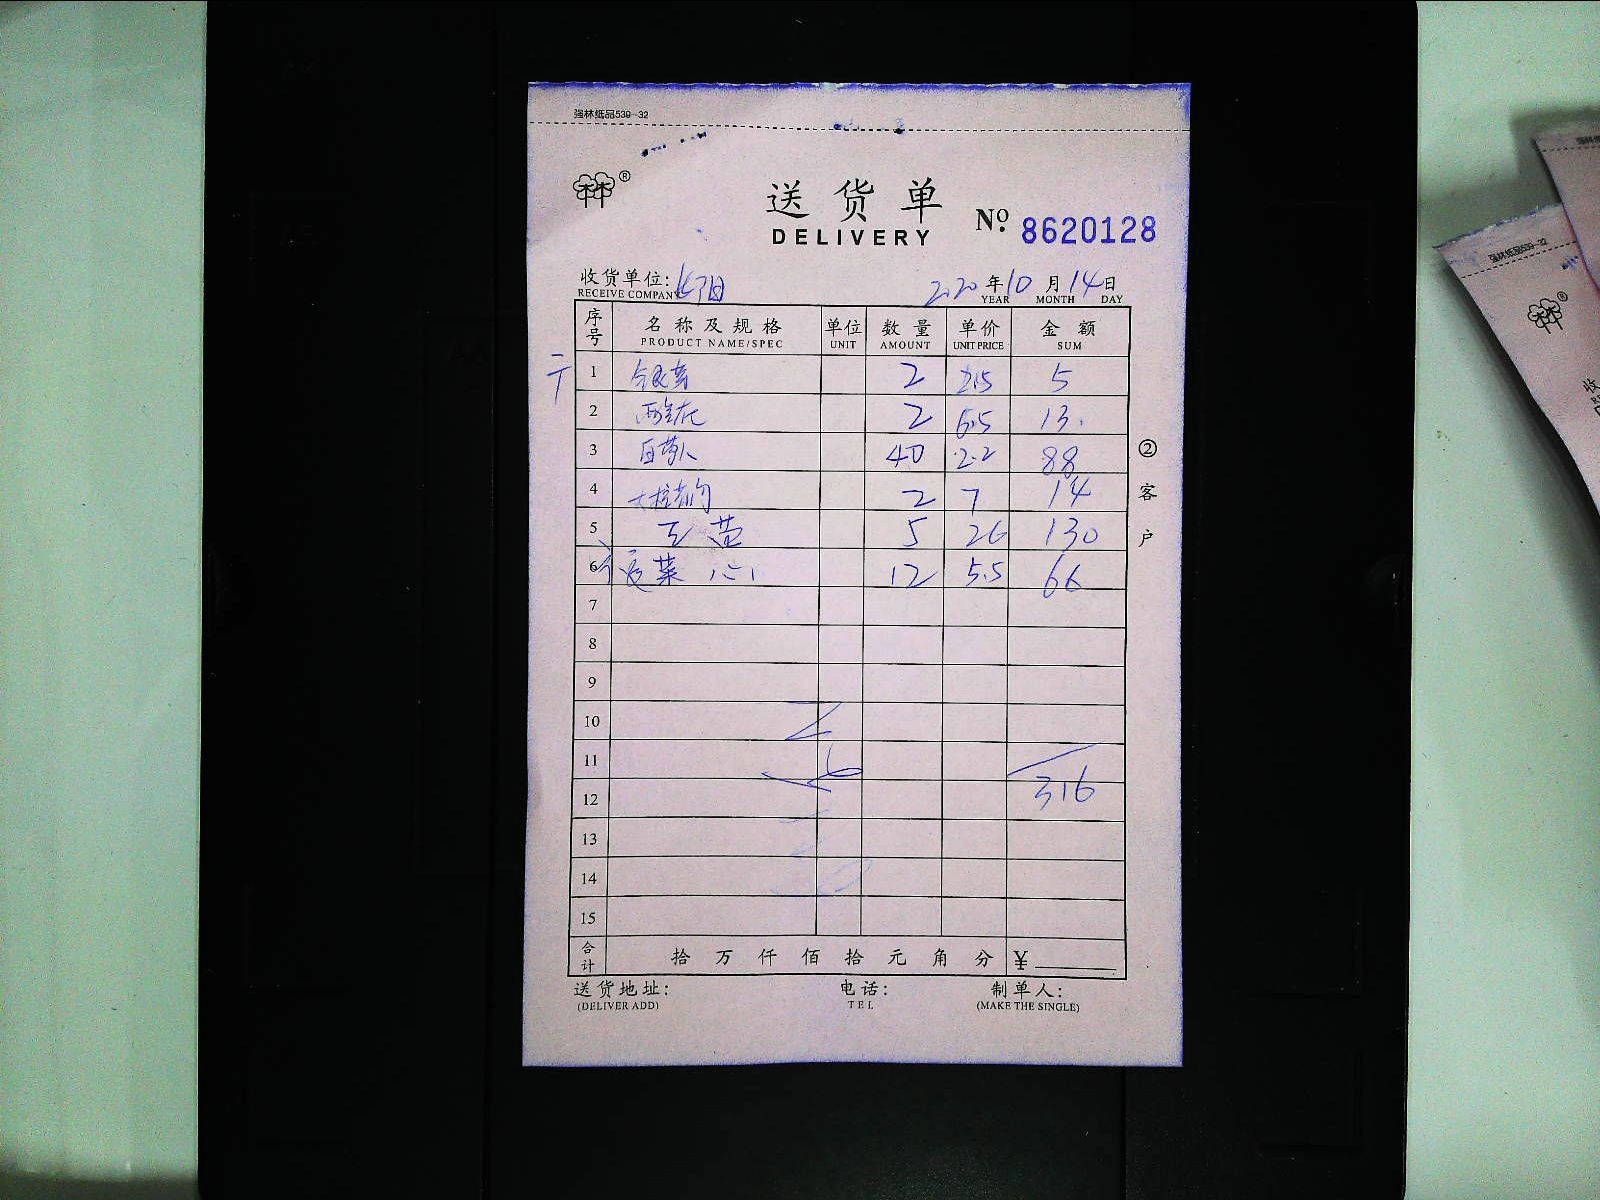 強林纸品539-32
®
送货单
DELIVERY
No. 8620128
收货单位:
RECEIVE COMPANY
2020年10月14日
YEAR MONTH DAY
序号 名称及规格 单位 数量 单价 金额
PRODUCT NAME/SPEC UNIT AMOUNT UNIT PRICE SUM
1 银芽 2 2.5 5
2 西兰花 2 6.5 13.
3 40 2.2 88
4 2 7 14
5 5 26 130
6 菜心 12 5.5 66
7
8
9
10
11
12 316
13
14
15
合计 拾 万 仟 佰 拾 元 角 分 ¥
②客户
送货地址: 电话: 制单人:
(DELIVER ADD) TEL (MAKE THE SINGLE)
強林纸品539-32
®